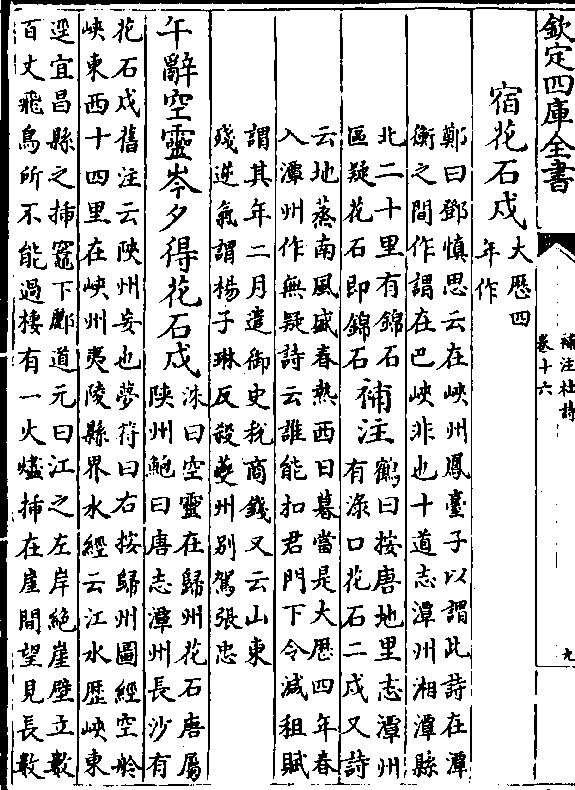 欽定四庫全書
補注杜詩
卷十六
九
宿花石戍大歷四
年作
鄭曰鄧慎思云在峽州鳳臺子以謂此詩在潭
衡之間作謂在巴峽非也十道志潭州湘潭縣
北二十里有錦石補注鶴曰按唐地里志潭州
區疑花石即錦石有淥口花石二戍又詩
云地蒸南風盛春熱西日暮當是大歷四年春
入潭州作無疑詩云誰能扣君門下令減租賦
謂其年二月遣御史稅商錢又云山東
殘逆氣謂楊子琳反殺夔州別駕張忠
午辭空靈岑夕得花石戍洙曰空靈在歸州花石唐屬
陜州鮑曰唐志潭州長沙有
花石戍舊注云陜州妄也夢符曰右按歸州圖經空舲
峽東西十四里在峽州夷陵縣界水經云江水歷峽東
逕宜昌縣之揷竈下酈道元曰江之左岸絕崖壁立數
百丈飛鳥所不能過棲有一火燼揷在崖間望見長數